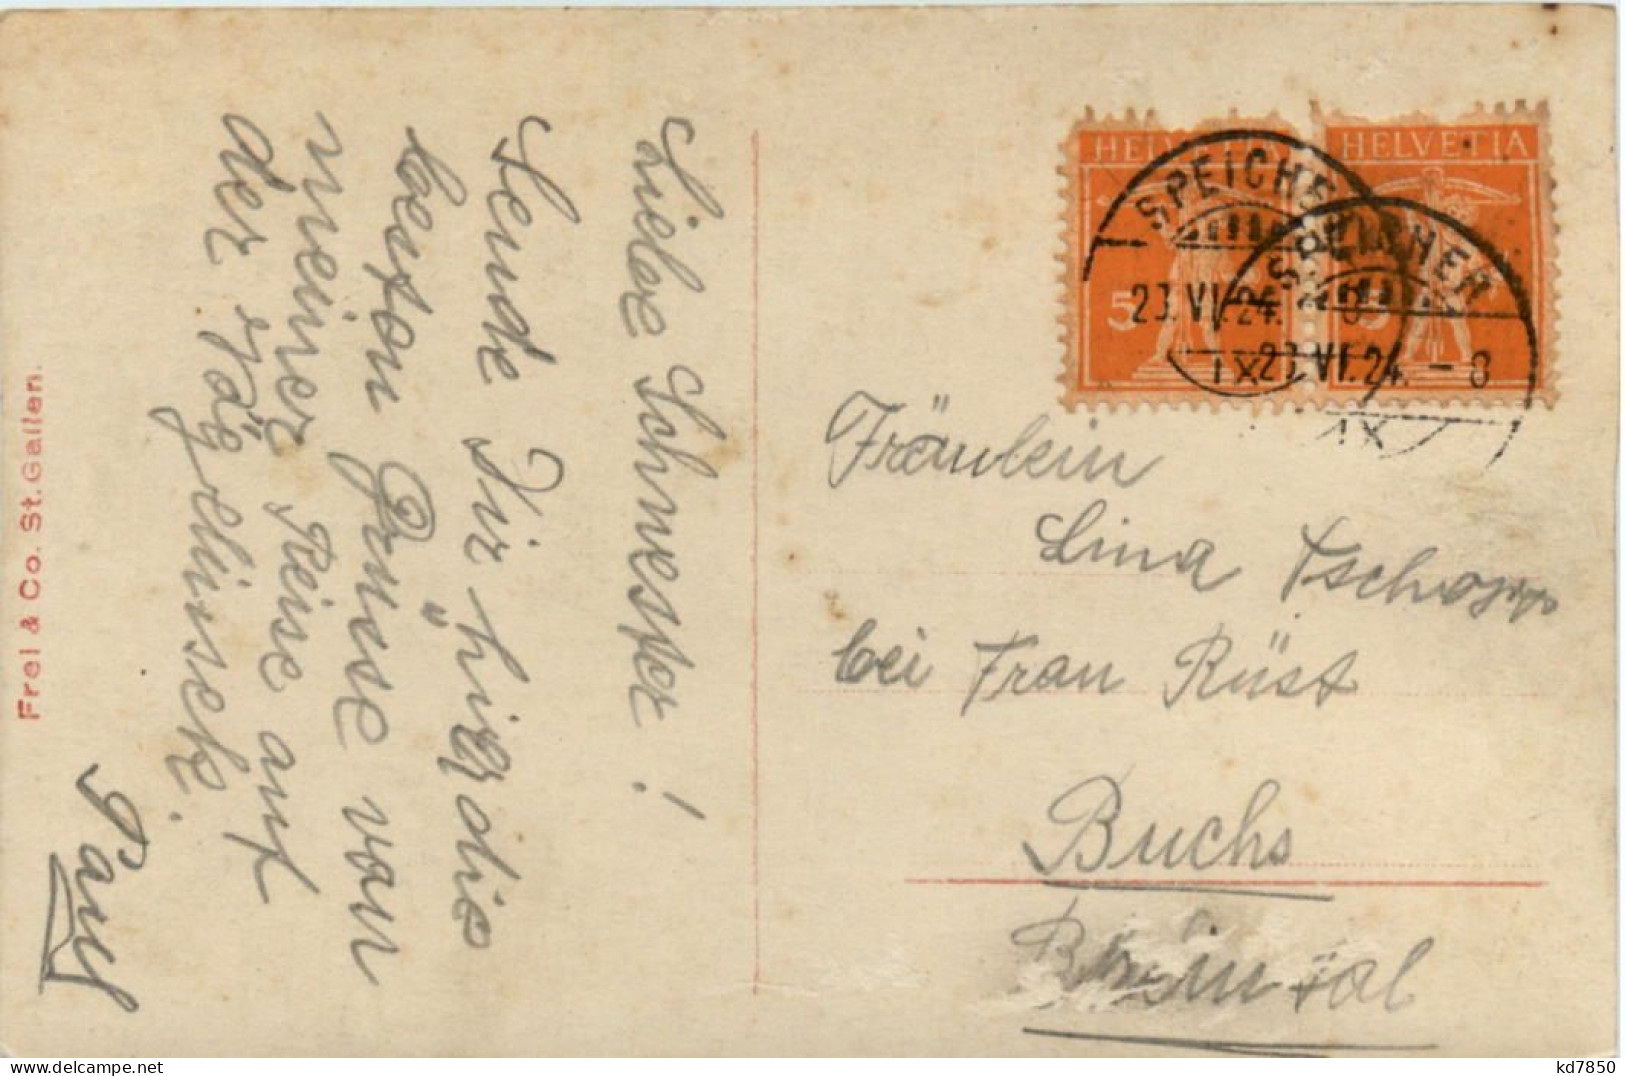 Liebe Schwester!
Sende Dir hier die
besten Grüsse von
meiner Reise auf
der Vögelinseck.
Paul
Frei & Co. St. Gallen.
HELVETIA
HELVETIA
5
5
SPEICHER
23. VI. 24. - 8
IX
SPEICHER
23. VI. 24. - 8
IX
Fräulein
Lina Tschopp
bei Frau Rüst
Buchs
Rheintal
kd7850